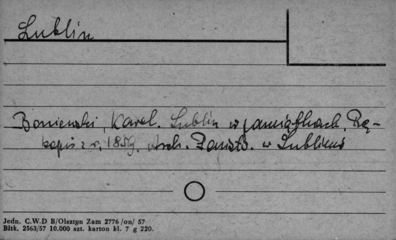 Lublin
Boniewski, Karol. Lublin w pamiątkach. Rę-
kopis z r. 1859. Arch. Państw. w Lublinie
Jedn. C.W.D B/Olsztyn Zam 2776 /on/ 57
Bltk. 2563/57 10.000 szt. karton kl. 7 g 220.